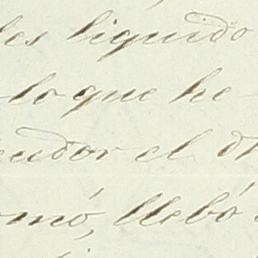 les liquido
lo que he
eudor el
omó, llebó